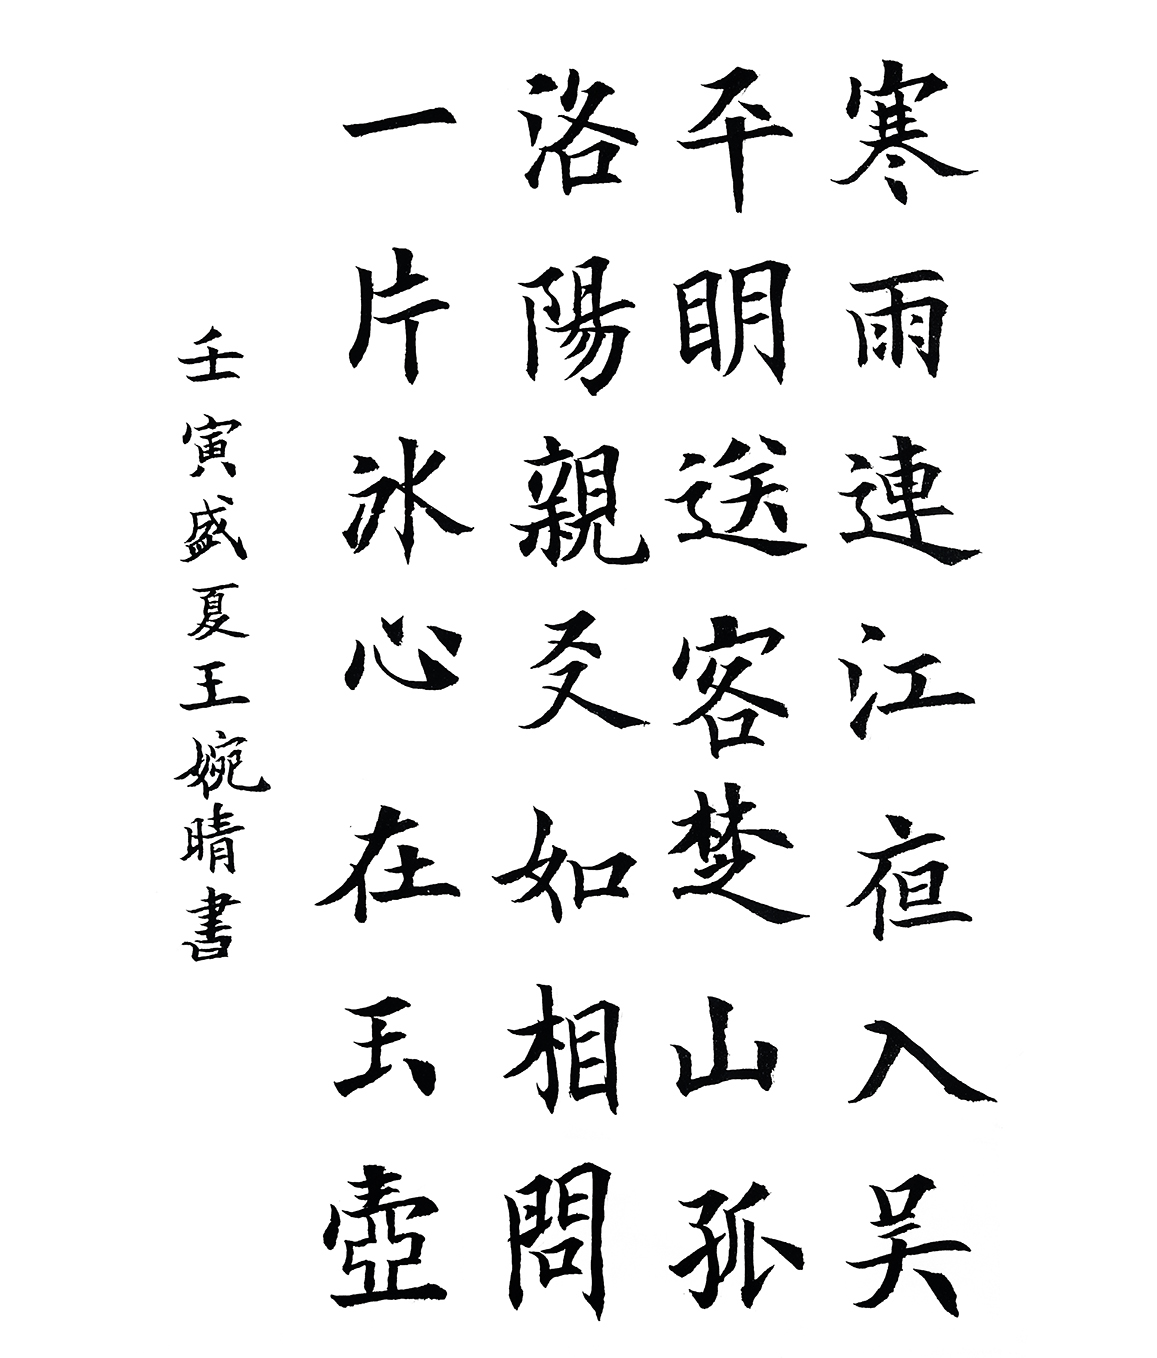 寒雨連江夜入吴
平明送客楚山孤
洛陽親友如相問
一片冰心在玉壺
壬寅盛夏王婉晴書